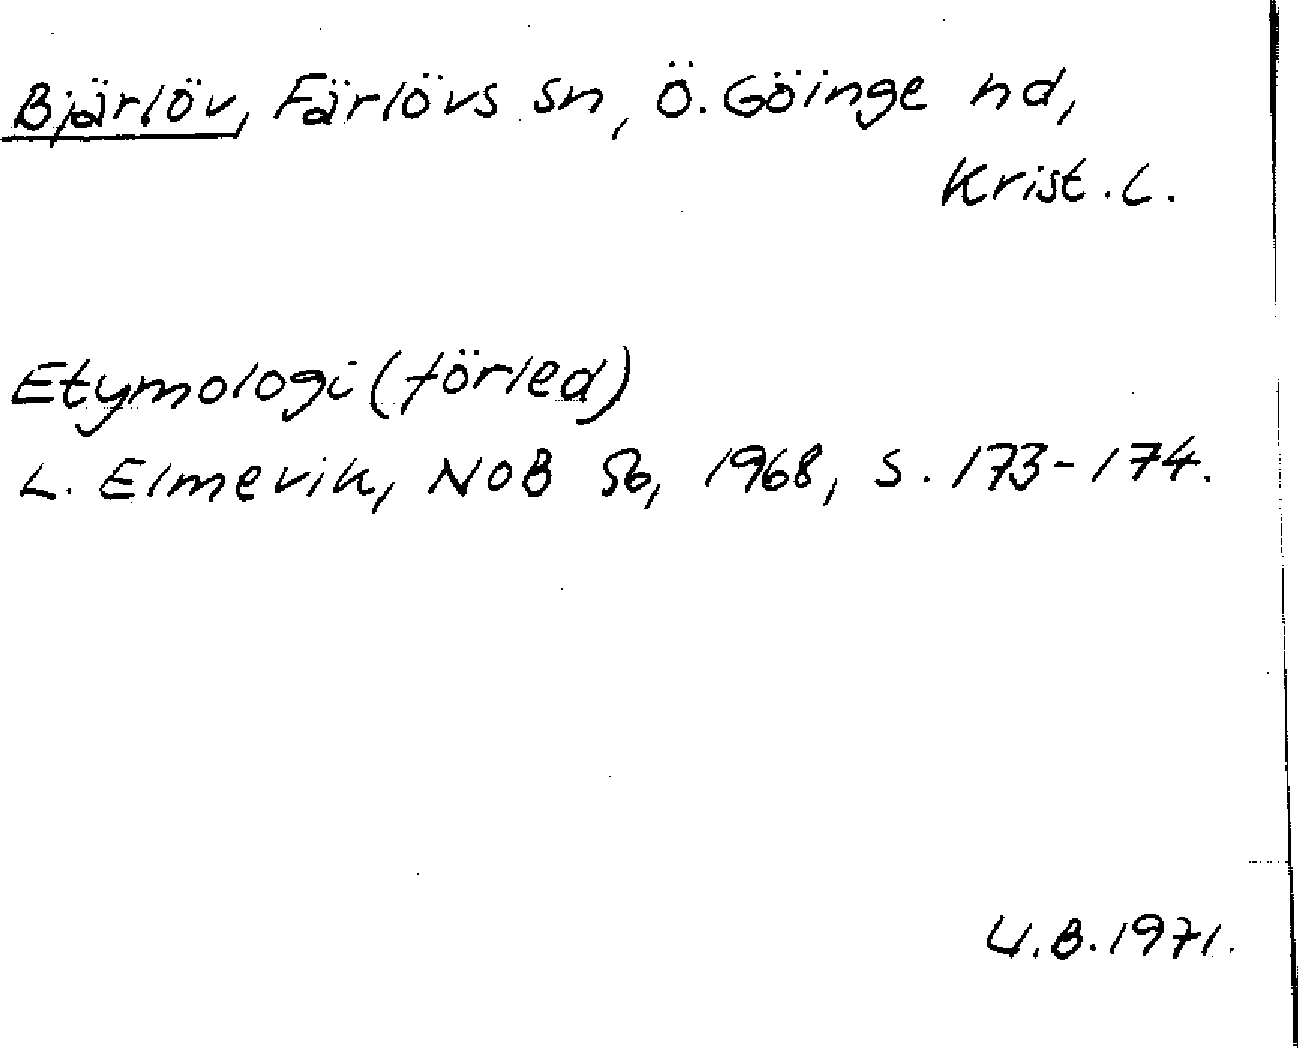 Bjärlöv, Färlövs sn, Ö. Göinge hd,
Krist. L.
Etymologi (förled)
L. Elmevik, NoB 56, 1968, s. 173-174.
U.B. 1971.